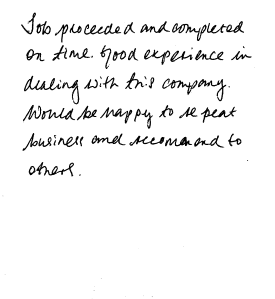 Job proceeded and completed
on time. Good experience in
dealing with this company.
Would be happy to repeat
business and recommend to
others.